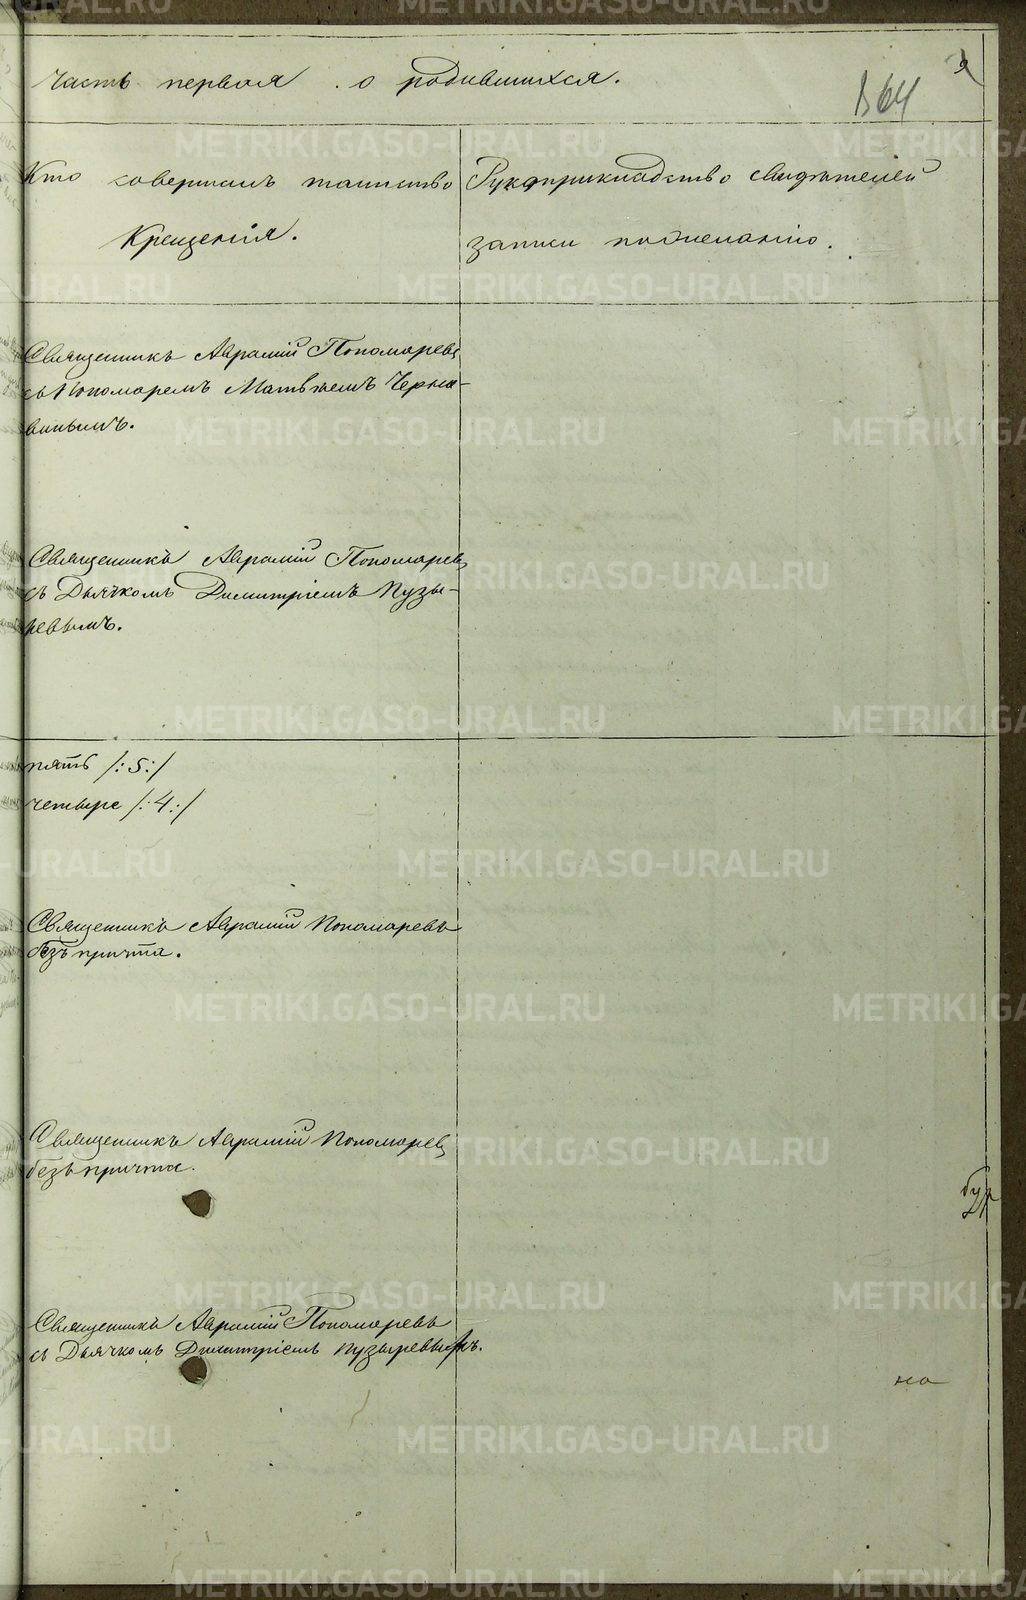 Часть первая . о родившихся.
9
64
Кто совершалъ таинство
Крещенія.
Рукоприкладство свидѣтелей
записи по желанію.
Священникъ Аврамій Пономаревъ
съ Пономаремъ Матвѣемъ Черны-
винымъ.
Священникъ Аврамій Пономаревъ
съ Дьячкомъ Димитріемъ Пузы-
ревымъ.
пять /:5:/
четыре /:4:/
Священникъ Аврамій Пономаревъ
безъ причта.
Священникъ Аврамій Пономаревъ
безъ причта.
Священникъ Аврамій Пономаревъ
съ Дьячкомъ Димитріемъ Пузыревымъ.
на
METRIKI.GASO-URAL.RU